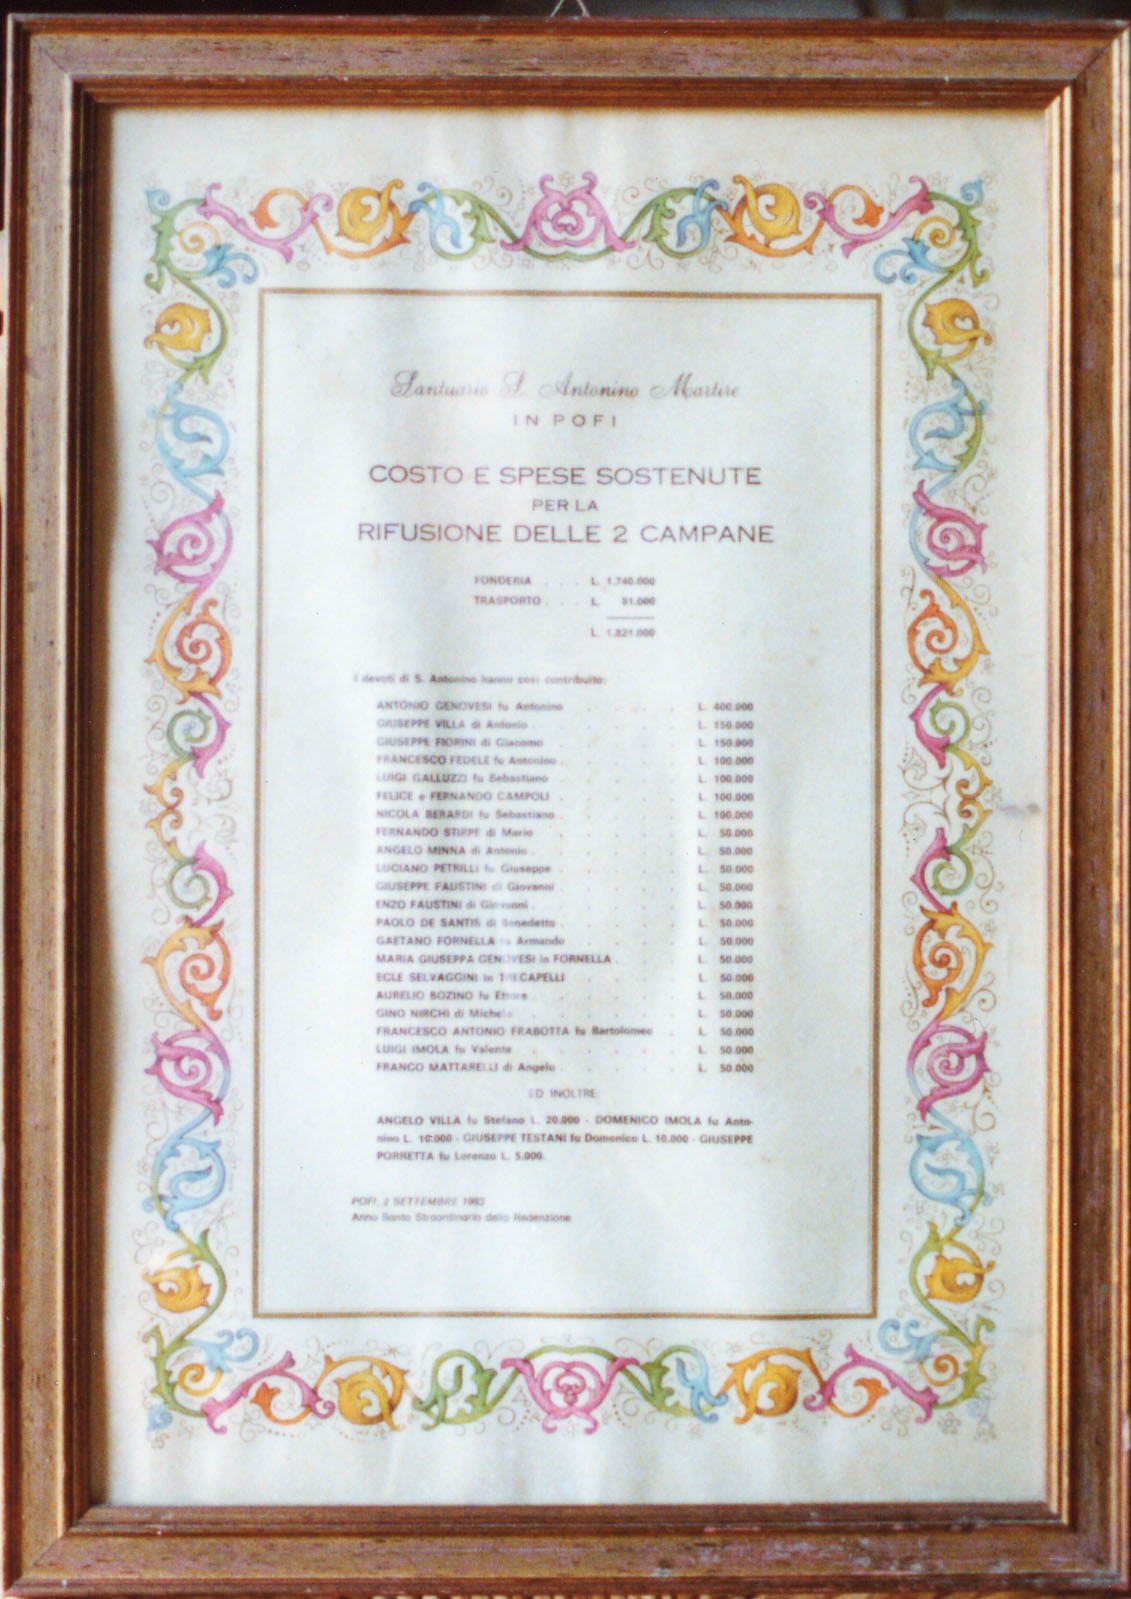 Santuario S. Antonino Martire
IN POFI
COSTO E SPESE SOSTENUTE
PER LA
RIFUSIONE DELLE 2 CAMPANE
FONDERIA . . . L. 1.740.000
TRASPORTO . . . L. 81.000
L. 1.821.000
I devoti di S. Antonino hanno così contribuito:
ANTONIO GENOVESI fu Antonino . . . . L. 400.000
GIUSEPPE VILLA di Antonio . . . . . L. 150.000
GIUSEPPE FIORINI di Giacomo . . . . . L. 150.000
FRANCESCO FEDELE fu Antonino . . . . . L. 100.000
LUIGI GALLUZZI fu Sebastiano . . . . . L. 100.000
FELICE e FERNANDO CAMPOLI . . . . . L. 100.000
NICOLA BERARDI fu Sebastiano . . . . . L. 100.000
FERNANDO STIRPE di Mario . . . . . L. 50.000
ANGELO MINNA di Antonio . . . . . L. 50.000
LUCIANO PETRILLI fu Giuseppe . . . . . L. 50.000
GIUSEPPE FAUSTINI di Giovanni . . . . . L. 50.000
ENZO FAUSTINI di Giovanni . . . . . L. 50.000
PAOLO DE SANTIS di Benedetto . . . . . L. 50.000
GAETANO FORNELLA fu Armando . . . . L. 50.000
MARIA GIUSEPPA GENOVESI in FORNELLA . . . L. 50.000
ECLE SELVAGGINI in TRECAPELLI . . . . L. 50.000
AURELIO BOZINO fu Ettore . . . . . L. 50.000
GINO NIRCHI di Michele . . . . . L. 50.000
FRANCESCO ANTONIO FRABOTTA fu Bartolomeo . L. 50.000
LUIGI IMOLA fu Valente . . . . . L. 50.000
FRANCO MATTARELLI di Angelo . . . . . L. 50.000
ED INOLTRE:
ANGELO VILLA fu Stefano L. 20.000 - DOMENICO IMOLA fu Anto-
nino L. 10.000 - GIUSEPPE TESTANI fu Domenico L. 10.000 - GIUSEPPE
PORRETTA fu Lorenzo L. 5.000.
POFI, 2 SETTEMBRE 1983
Anno Santo Straordinario della Redenzione